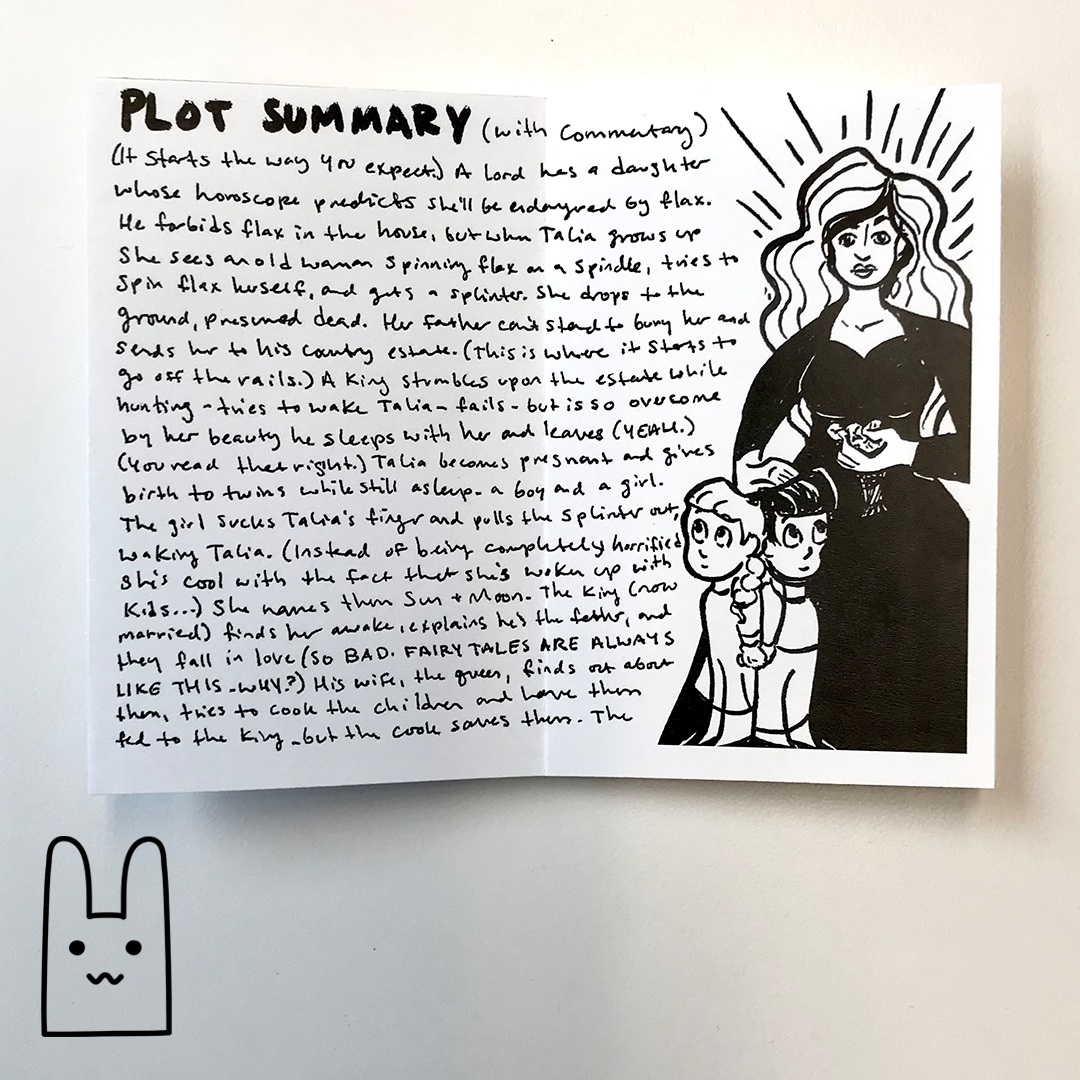 PLOT SUMMARY (with commentary)
(It starts the way you expect.) A lord has a daughter
whose horoscope predicts she'll be endangered by flax.
He forbids flax in the house, but when Talia grows up
she sees an old woman spinning flax on a spindle, tries to
spin flax herself, and gets a splinter. She drops to the
ground, presumed dead. Her father can't stand to bury her and
sends her to his country estate. (This is where it starts to
go off the rails.) A King stumbles upon the estate while
hunting - tries to wake Talia - fails - but is so overcome
by her beauty he sleeps with her and leaves (YEAH.)
(You read that right.) Talia becomes pregnant and gives
birth to twins while still asleep - a boy and a girl.
The girl sucks Talia's finger and pulls the splinter out,
waking Talia. (Instead of being completely horrified
she's cool with the fact that she's woken up with
kids...) She names them Sun + Moon. The King (now
married) finds her awake, explains he's the father, and
they fall in love (SO BAD. FAIRY TALES ARE ALWAYS
LIKE THIS - WHY?) His wife, the queen, finds out about
them, tries to cook the children and have them
fed to the King - but the cook saves them. The